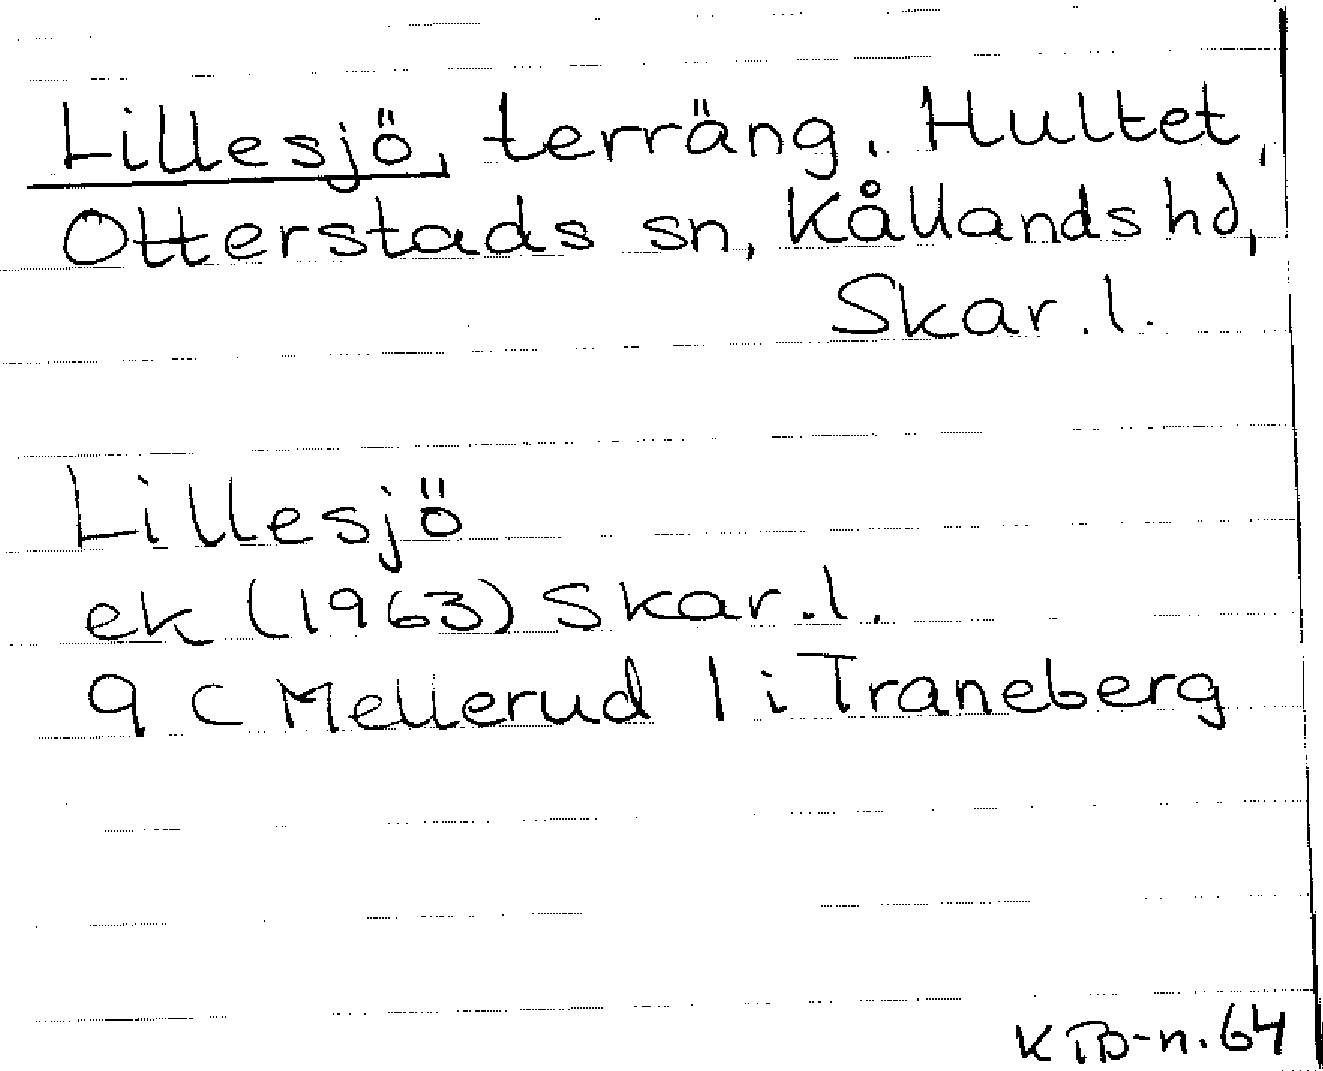 Lillesjö, terräng. Hultet,
Otterstads sn, Kållands hd,
Skar. l.
Lillesjö
ek (1963) Skar. l.
9 C Mellerud 1 i Traneberg
-n. 64